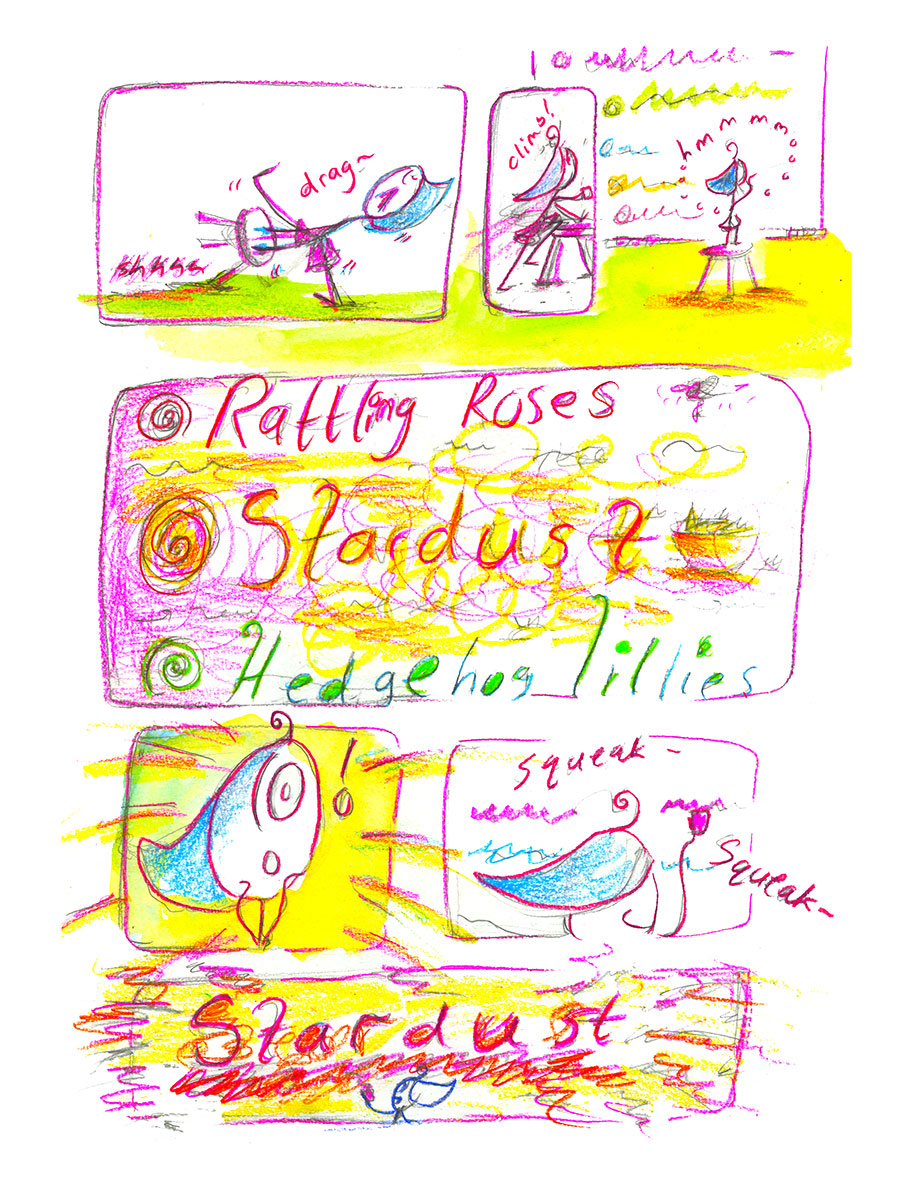 drag~
climb!
hmmmm...
Rattling Roses
Stardust
Hedgehog lillies
!
squeak -
squeak -
Stardust